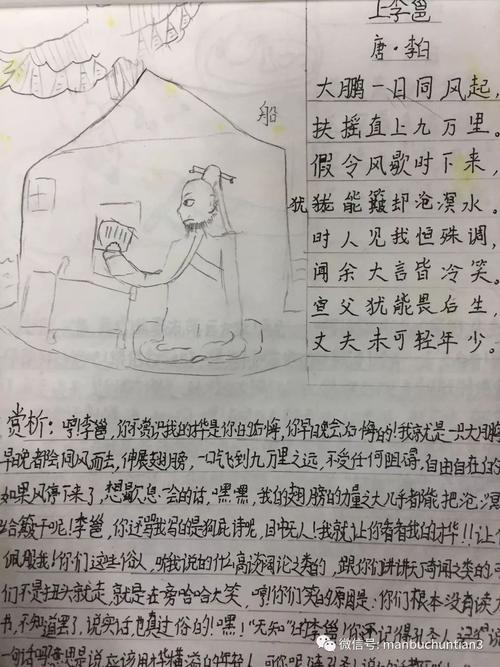 上李邕
唐·李白
大鹏一日同风起,
扶摇直上九万里。
假令风歇时下来,
犹能簸却沧溟水。
时人见我恒殊调,
闻余大言皆冷笑。
宣父犹能畏后生,
丈夫未可轻年少。
船
犹
赏析:哼!李邕,你不赏识我的才华是你的后悔,你早晚会后悔的!我就是一只大鹏
早晚都会同风而去,伸展翅膀,一口气飞到九万里之远,不受任何阻碍,自由自在的
如果风停下来了,想歇息一会的话,嘿嘿,我的翅膀的力量之大几乎都能把沧溟
给簸干呢!李邕,你还骂我写的是狗屁诗呢,目中无人!我就让你看看我的才华!!让
佩服我!你们这些俗人,听我说的什么高谈阔论之类的,跟你们讲讲天奇闻之类的
们不是扭头就走,就是在旁哈哈大笑,哼!你们笑的原因是:你们根本没有读
书,不知道罢了,说实话也真过俗的!嘿!"无知"的李邕!你还记得孔圣人
一句话吗?意思是说应该用才华横溢的年轻人
微信号: manbuchuntian3